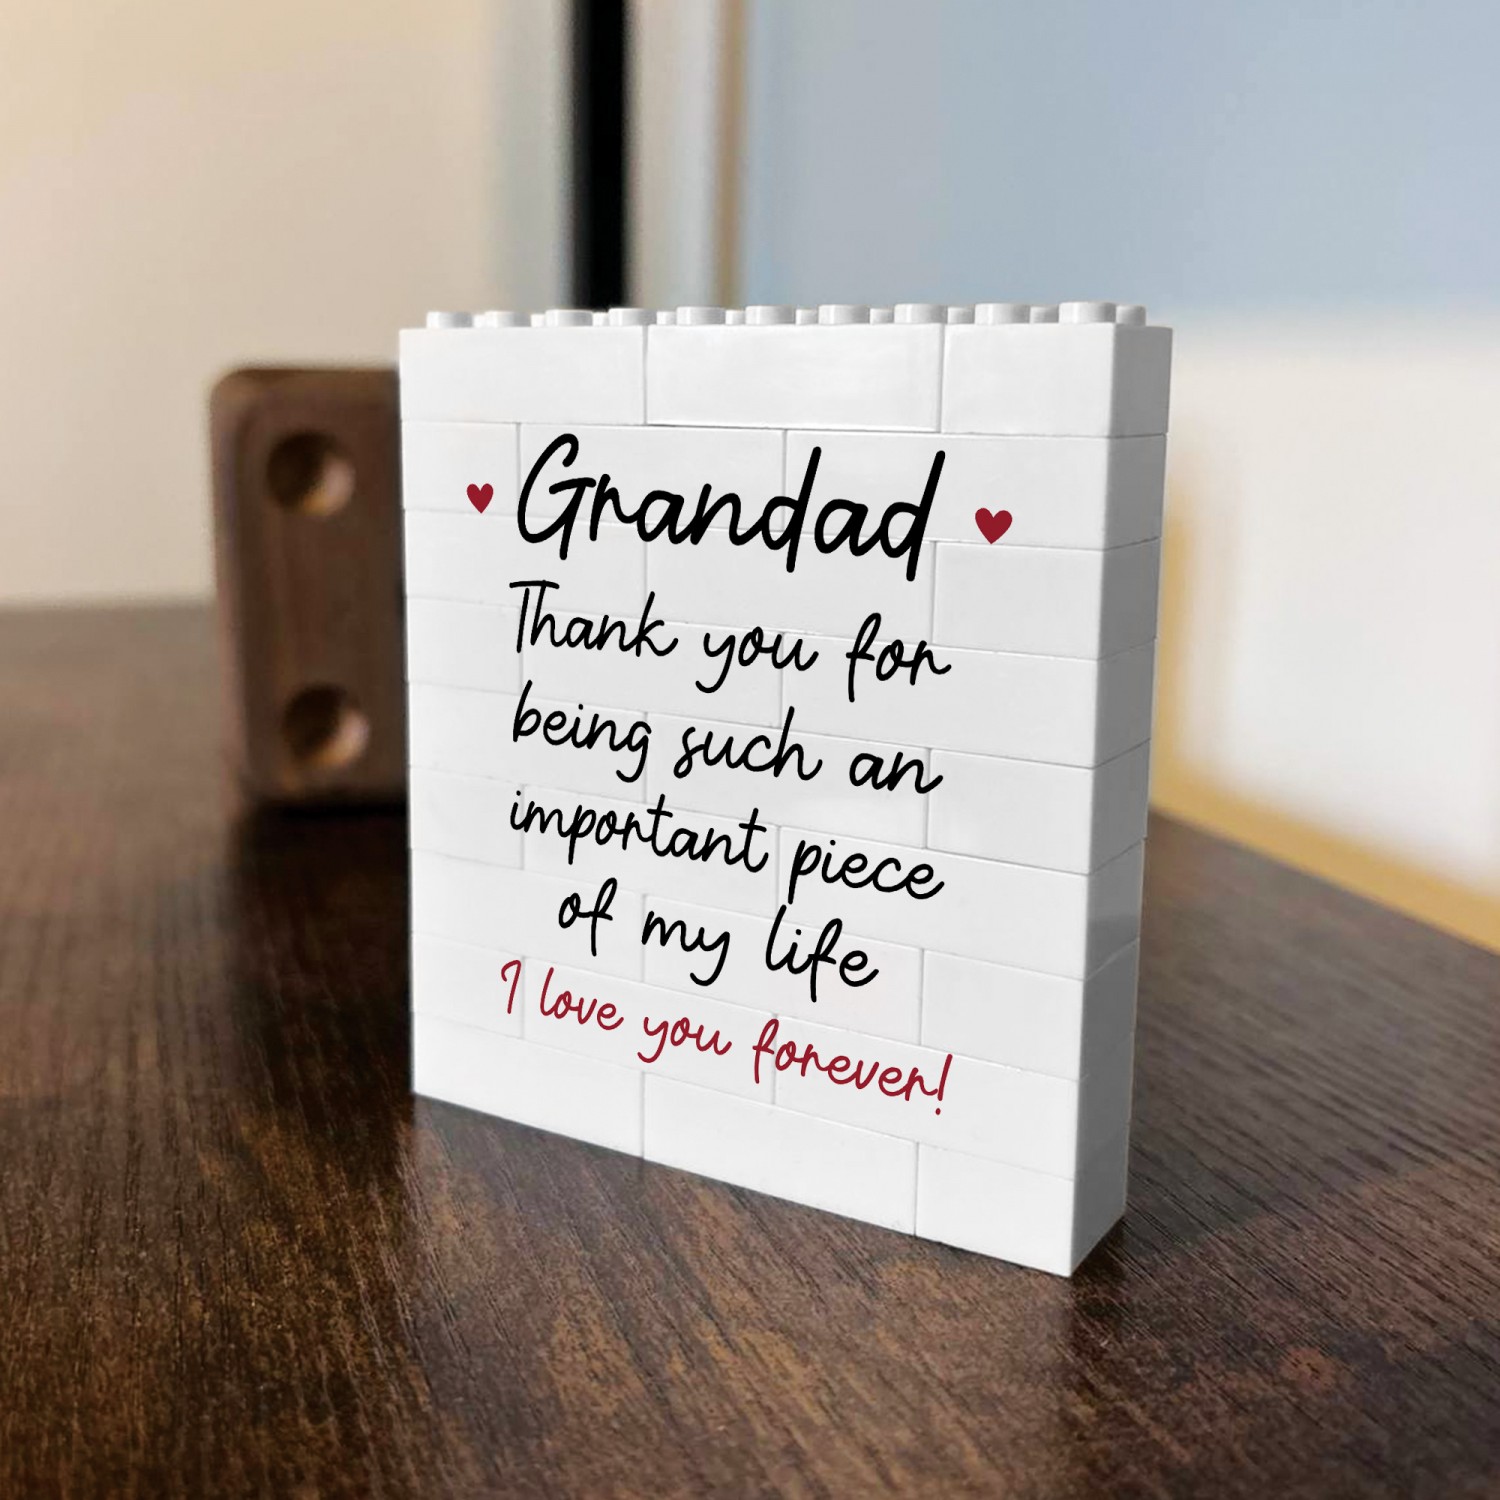 Grandad
Thank you for
being such an
important piece
of my life
I love you forever!